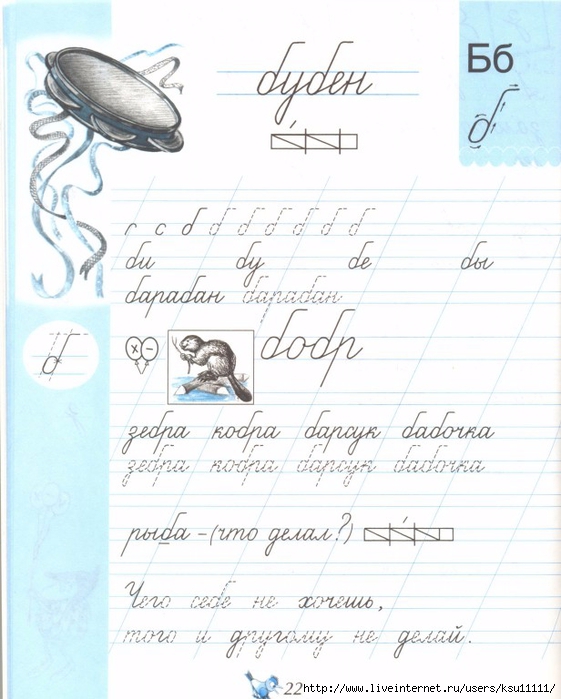 бубен
Бб
б
с б б б б б б б
би бу бе бы
барабан барабан
б
× − бобр
зебра кобра барсук бабочка
зебра кобра барсук бабочка
рыба – (что делал?)
Чего себе не хочешь,
того и другому не делай.
22
http://www.liveinternet.ru/users/ksu11111/